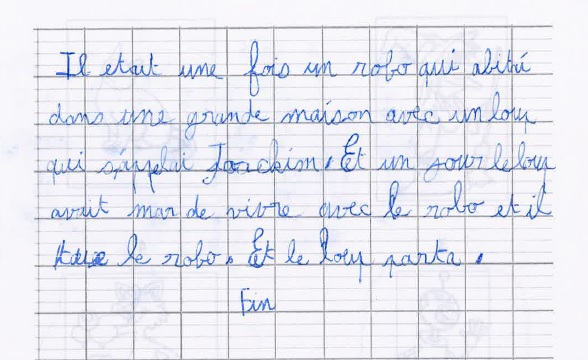 Il etait une fois un robo qui abité
dans une grande maison avec un loup
qui s'appelai Joachim. Et un jour le loup
avait mar de vivre avec le robo et il
tue le robo. Et le loup parta.
Fin